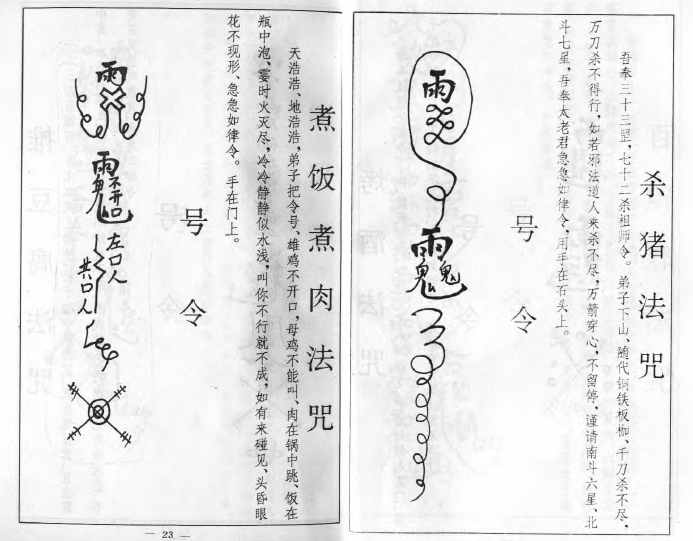 杀猪法咒
吾奉三十三罡，七十二杀祖师令。弟子下山、随代铜铁板枷、千刀杀不尽，
万刀杀不得行，如若邪法道人来杀不尽，万箭穿心，不留停，谨请南斗六星、北
斗七星，吾奉太老君急急如律令，用手在石头上。
号令
雨
雨鬼鬼
煮饭煮肉法咒
天浩浩、地浩浩，弟子把令号、雄鸡不开口，母鸡不能叫、肉在锅中跳、饭在
瓶中泡、霎时火灭尽，冷冷静静似水浅，叫你不行就不成，如有来碰见、头昏眼
花不现形、急急如律令。手在门上。
号令
雨
雨鬼不开口
左口人
共口人
— 23 —